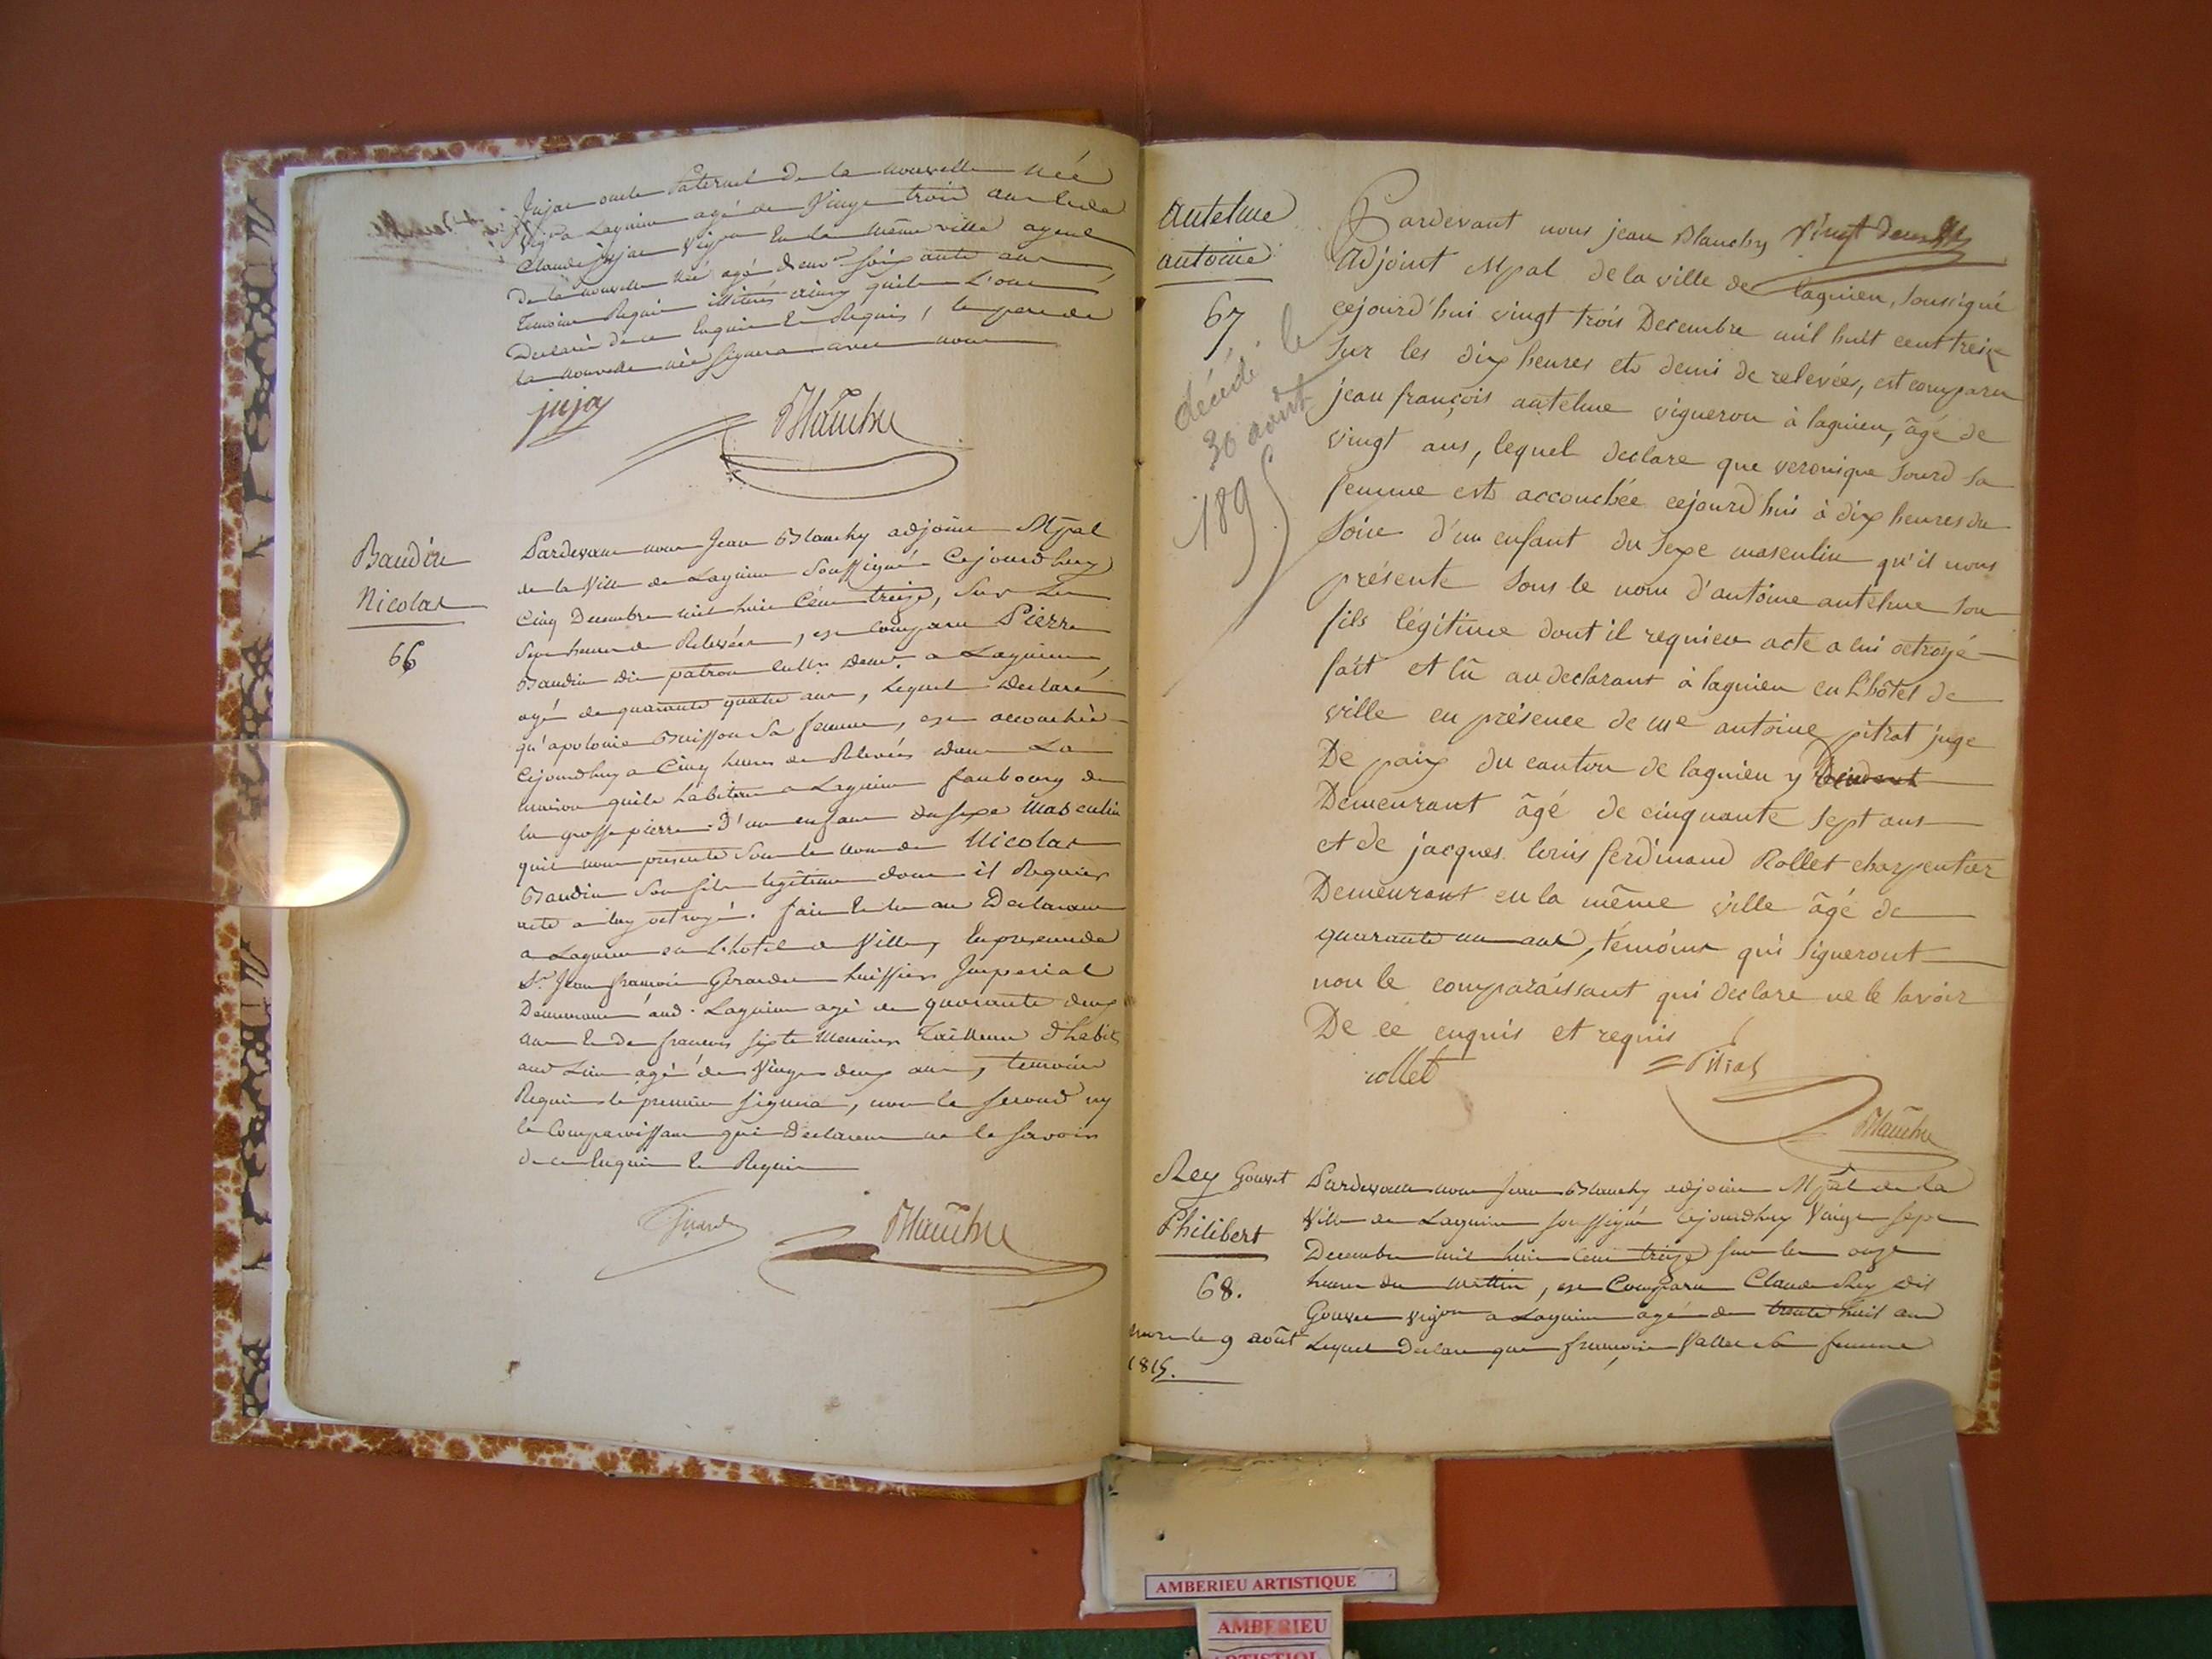 Jujat oncle Paternel de la nouvelle Née
Vigon a Lagnieu agé de Vingt trois ans et de
Claude jujat Vigon En la même ville ayeul
De la nouvelle Née agé d'env. soixante ans
Temoins Requis illiterés ainsy qu'ils L'ont
Declaré de ce Enquis Et Requis, le pere de
la nouvelle née signera avec nous
juja
Blanchy
Baudin
Nicolas
66
Pardevant nous Jean Blanchy adjoint Mpal
de la Ville de Lagnieu Soussigné Cejourdhuy
Cinq Decembre mil huit Cent treize, Sur Les
Sept heures de Relevées, est Comparu Pierre
Baudin dit patron cultr. demt. a Lagnieu
agé de quarante quatre ans, Lequel Declare
qu'apolonie Buisson Sa femme, est accouchée
Cejourdhuy a Cinq heures de Relevés dans La
maison qu'ils habitent a Lagnieu faubourg de
la grosse pierre D'un enfant du sexe Masculin
qu'il nous presente Sous le nom de Nicolas
Baudin Son fils legitime dont il Requier
acte a luy octroyé. fait Et lu au Declarant
a Lagnieu en L'hotel de Ville, En presence de
Sr. Jean françois Girardin huissier Imperial
Demeurant aud. Lagnieu agé de quarante deux
ans Et de françois sixte Meunier Tailleur d'habits
aud Lieu agé de Vingt deux ans, temoins
Requis le premier signera, non le second ny
le Comparoissant qui Declarent ne le savoir
de ce Enquis Et Requis
Blanchy
Antelme
antoine
67
décédé le
30 août
1895
Pardevant nous jean Blanchy
Adjoint Mpal de la ville de lagnieu, soussigné
cejourd'hui vingt trois Decembre mil huit cent treize
Sur les dix heures et demi de relevées, est comparu
jean françois antelme vigneron à lagnieu, âgé de
vingt ans, lequel declare que veronique Sourd sa
femme est accouchée cejourd'hui à dix heures du
Soir d'un enfant du sexe masculin qu'il nous
présente Sous le nom d'antoine antelme Son
fils légitime dont il requiert acte a lui octroyé
fait et lû au declarant à lagnieu en l'hôtel de
ville en présence de me antoine pitrat juge
De paix du canton de lagnieu y residant
Demeurant âgé de cinquante sept ans
et de jacques louis ferdinand Rollet charpentier
Demeurant en la même ville âgé de
quarante un ans, témoins qui signeront
non le comparaissant qui declare ne le savoir
De ce enquis et requis
rollet
Pitrat
Blanchy
Rey Gouvet
Philibert
68.
mort le 9 août
1815.
Pardevant nous Jean Blanchy adjoint Mpal de la
Ville de Lagnieu soussigné Cejourdhuy Vingt sept
Decembre mil huit Cent treize sur les onze
heures du mattin, est Comparu Claude Rey dit
Gouvet vigon a Lagnieu agé de trente huit ans
Lequel declare que françoise Vallet sa femme
AMBERIEU ARTISTIQUE
AMBERIEU
ARTISTIQUE